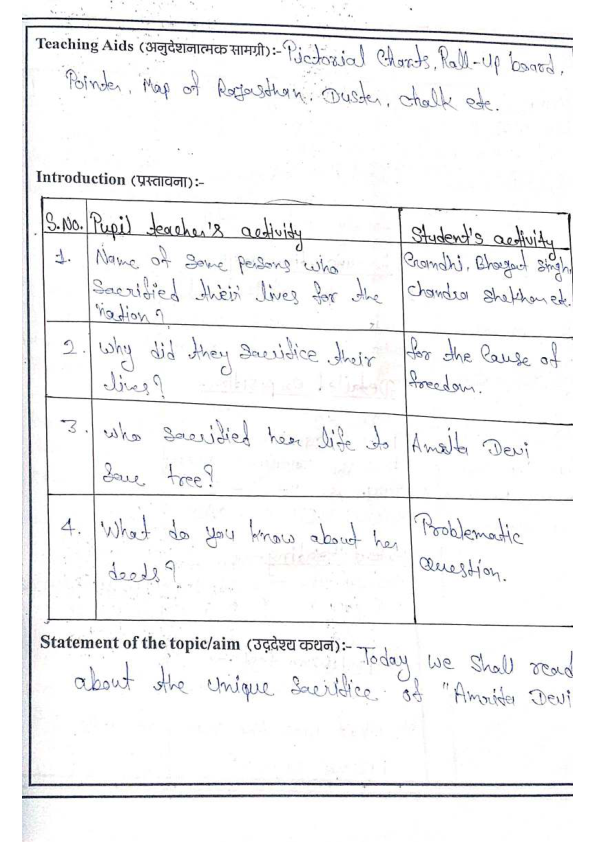 Teaching Aids (अनुदेशनात्मक सामग्री):- Pictorial Charts, Roll-Up board,
Pointer, Map of Rajasthan, Duster, chalk etc.
Introduction (प्रस्तावना):-
S.No. Pupil teacher's activity Student's activity
1. Name of some persons who Gandhi, Bhagat Singh,
sacrified their lives for the Chandra Shekhar etc.
nation?
2. Why did they sacrifice their for the cause of
lives? freedom.
3. who sacrified her life to Amrita Devi
save tree?
4. What do you know about her Problematic
deeds? Question.
Statement of the topic/aim (उद्देश्य कथन):- Today we shall read
about the unique sacrifice of "Amrita Devi